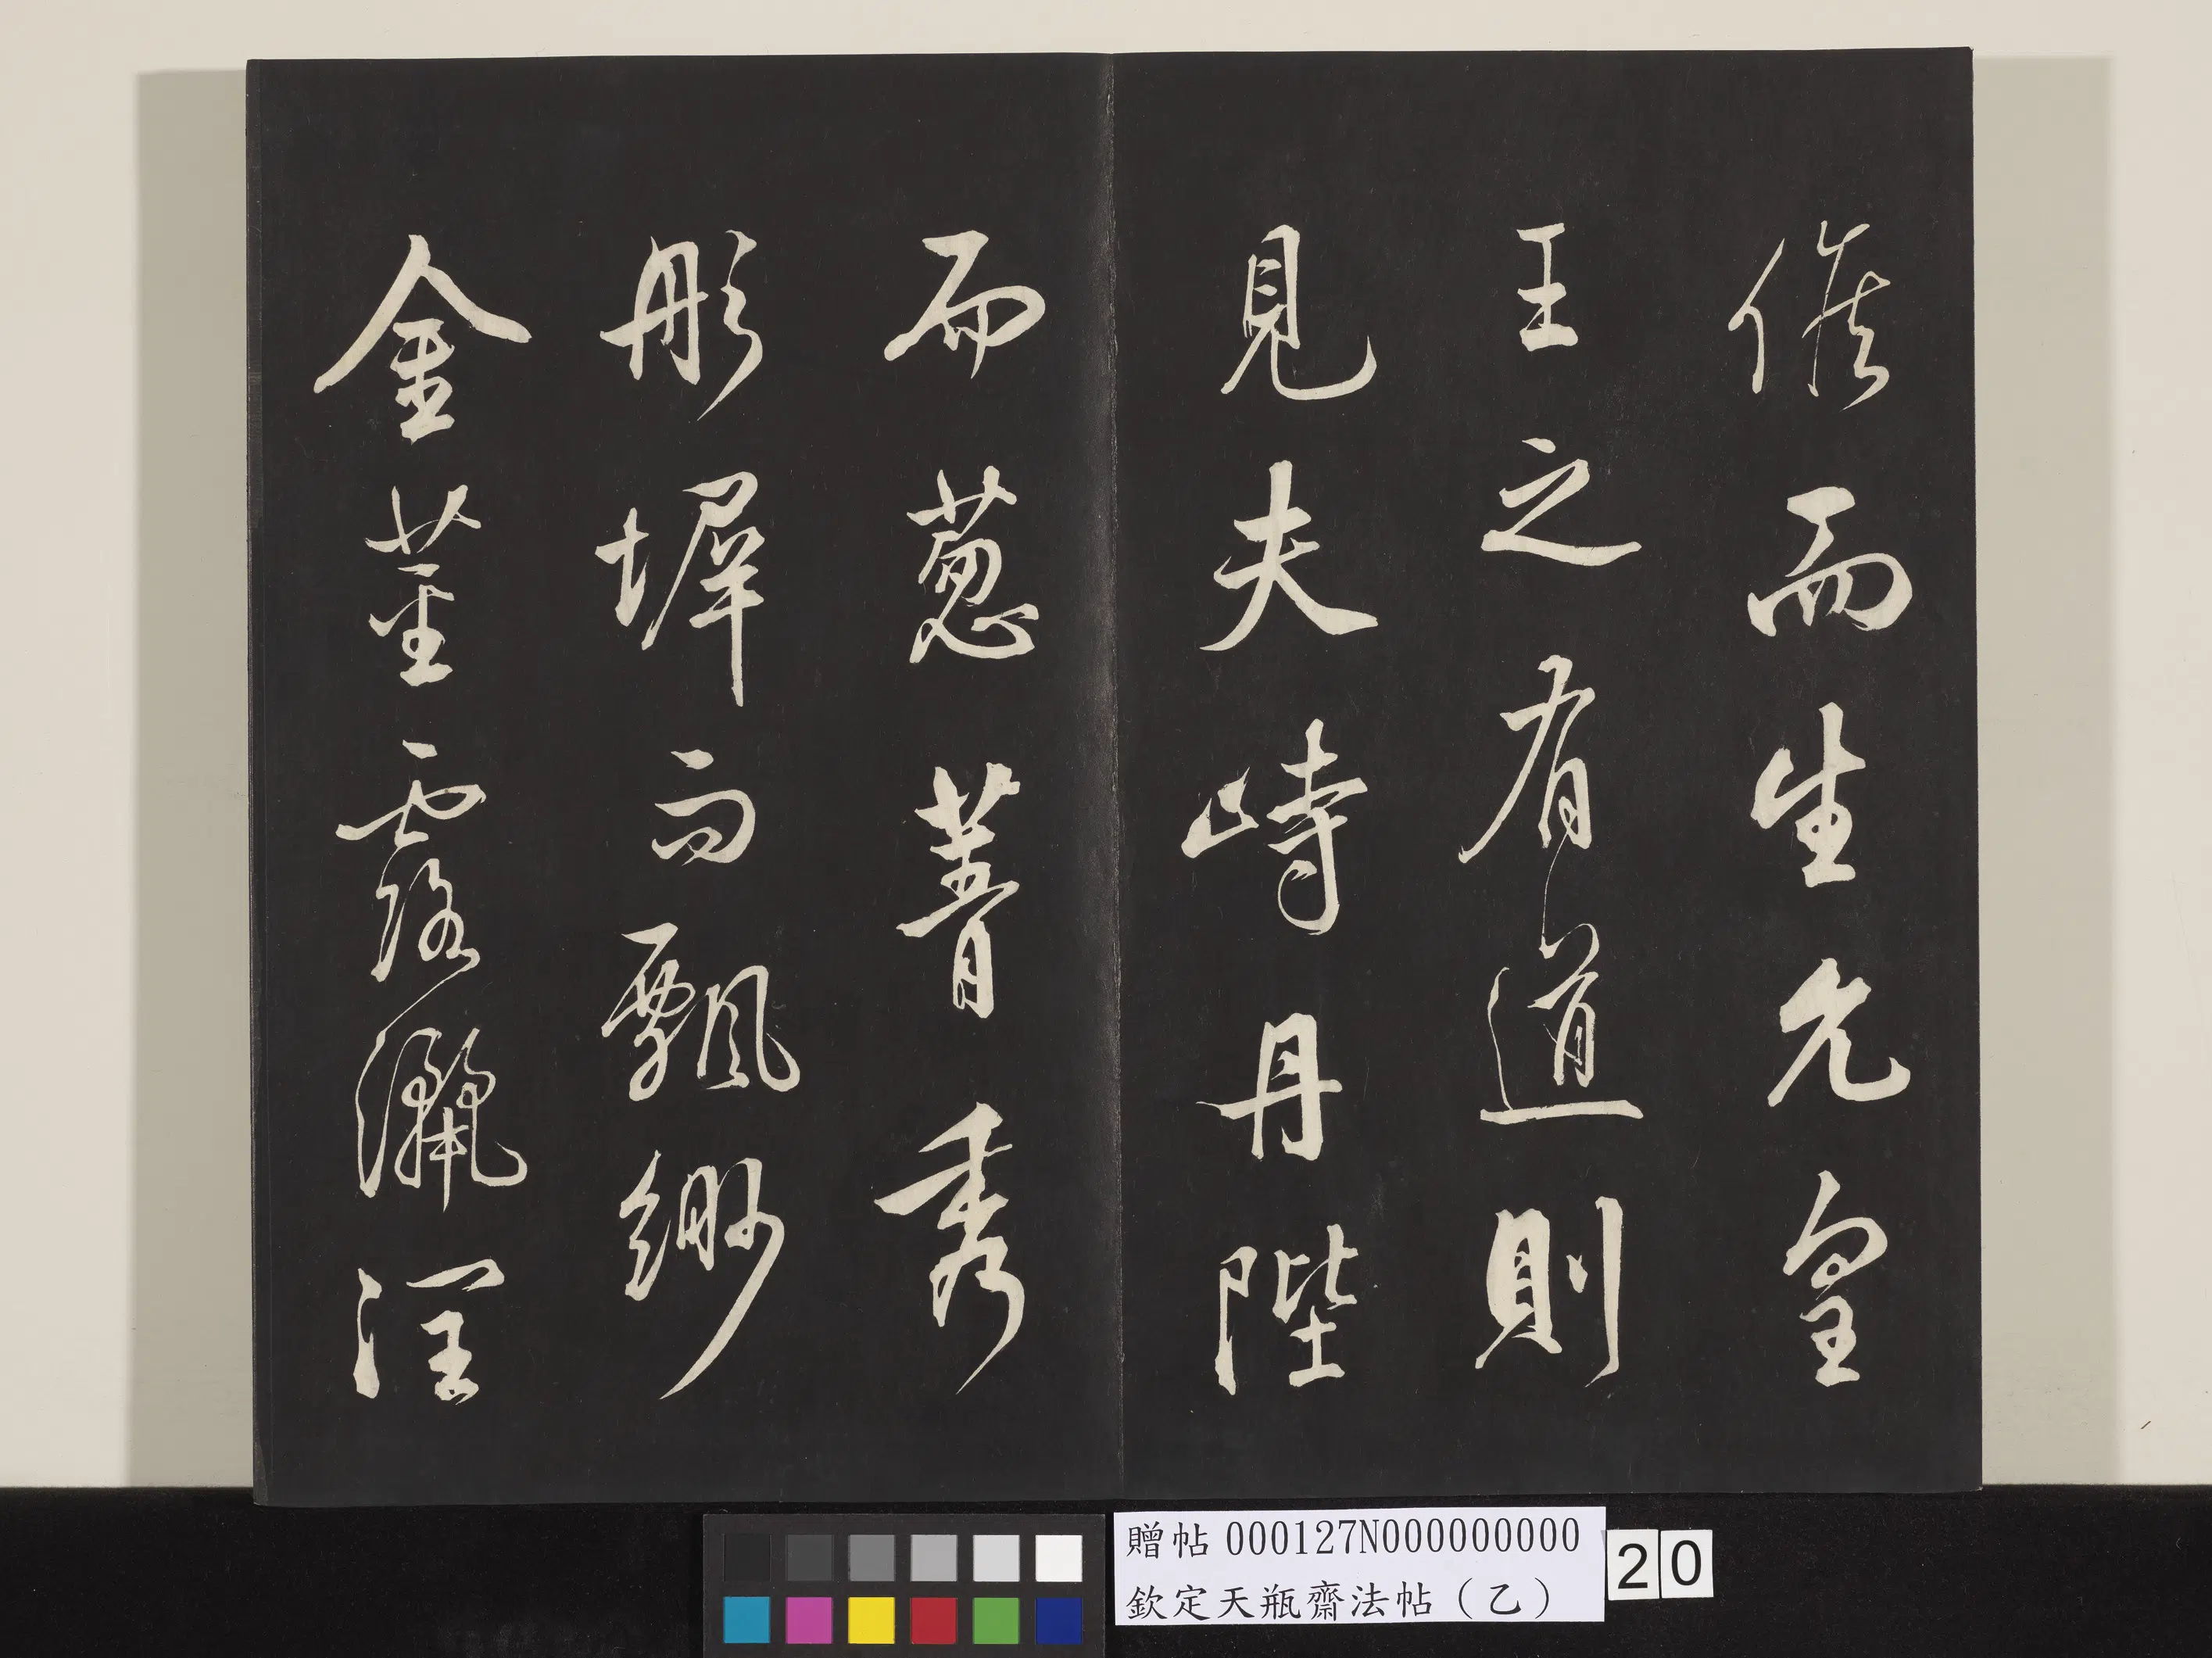 候而生允皇
王之有道則
見夫峙丹陛
而葱菁秀
彤墀而飄緲
金莖露灑潤
贈帖 000127N000000000
欽定天瓶齋法帖（乙）
20